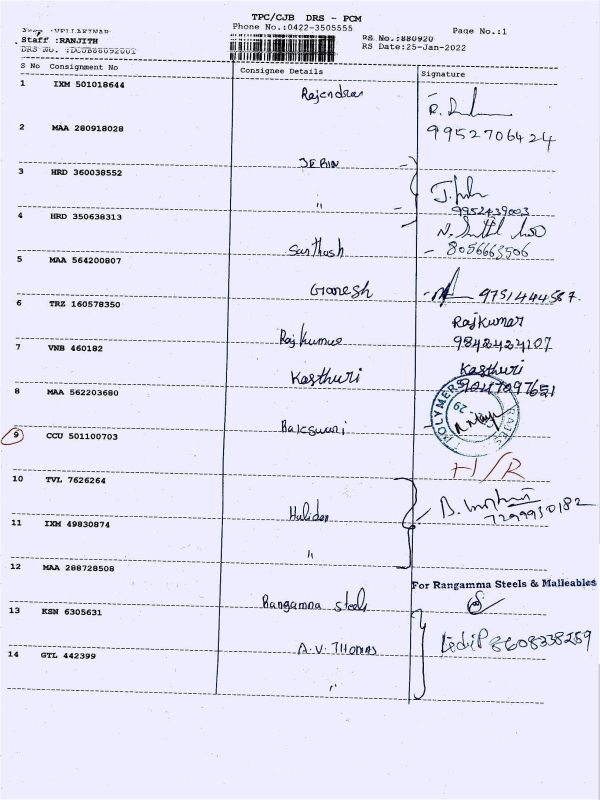 TPC/CJB DRS - PCM
Phone No.:0422-3505555
Page No.:1
Staff :RANJITH
RS No.:880920
RS Date:25-Jan-2022
DRS No. :DCJB88092001
S No Consignment No Consignee Details Signature
1 IXM 501018644 Rajendran
9952706424
2 MAA 280918028
JERIN
3 HRD 360038552 "
9952439003
4 HRD 350638313
Santhosh 8056663506
5 MAA 564200807
Ganesh 9751444587.
6 TRZ 160578350 Rajkumar
Rajkumar 9842424107
7 VNB 460182 Kasthuri
Kasthuri 9047097651
8 MAA 562203680
POLYMERS
Rajeswari
9 CCU 501100703
H/R
10 TVL 7626264
7299930182
11 IXM 49830874
"
12 MAA 288728508
For Rangamma Steels & Malleables
Rangamma steels
13 KSN 6305631
A.V. THOMAS 8608338259
14 GTL 442399
"